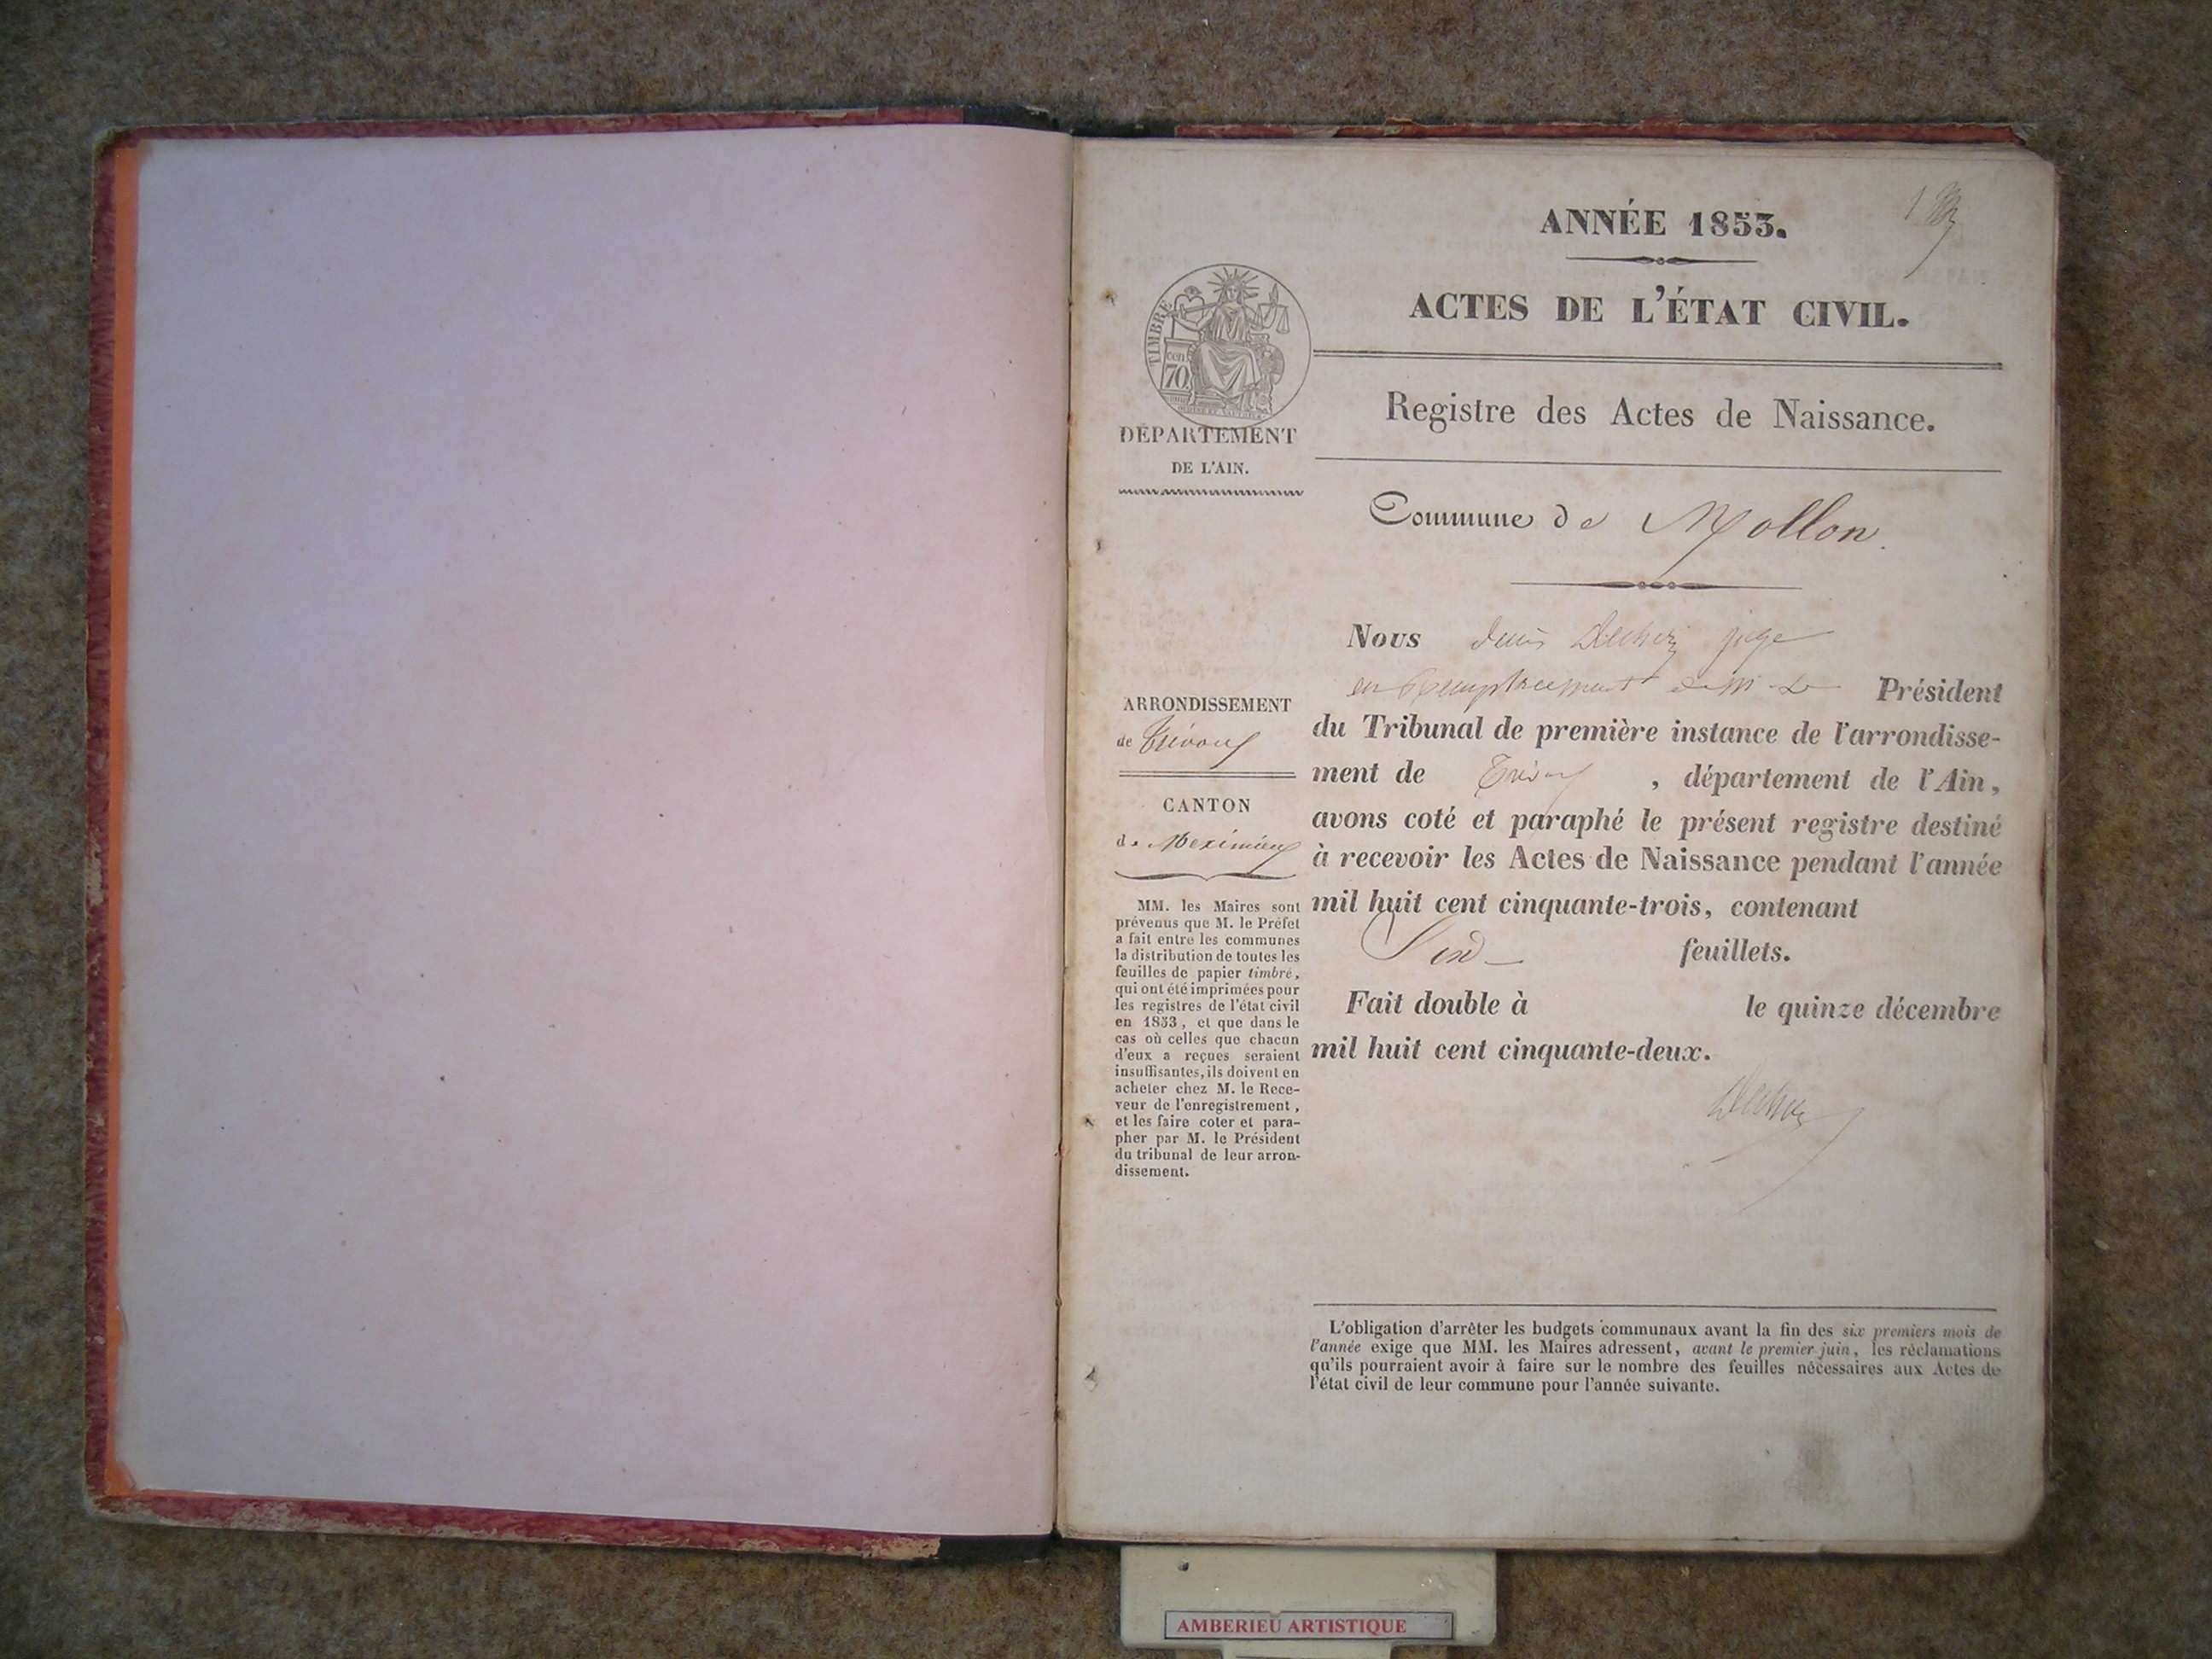 ANNÉE 1853.
1
ACTES DE L'ÉTAT CIVIL.
Registre des Actes de Naissance.
TIMBRE
cen.
70
DÉPARTEMENT
DE L'AIN.
Commune de Mollon.
ARRONDISSEMENT
de Trévoux
CANTON
de Meximieux
MM. les Maires sont
prévenus que M. le Préfet
a fait entre les communes
la distribution de toutes les
feuilles de papier timbré,
qui ont été imprimées pour
les registres de l'état civil
en 1853, et que dans le
cas où celles que chacun
d'eux a reçues seraient
insuffisantes, ils doivent en
acheter chez M. le Rece-
veur de l'enregistrement,
et les faire coter et para-
pher par M. le Président
du tribunal de leur arron-
dissement.
Nous Denis juge
en Remplacement de M. Le Président
du Tribunal de première instance de l'arrondisse-
ment de Trévoux, département de l'Ain,
avons coté et paraphé le présent registre destiné
à recevoir les Actes de Naissance pendant l'année
mil huit cent cinquante-trois, contenant
feuillets.
Fait double à le quinze décembre
mil huit cent cinquante-deux.
L'obligation d'arrêter les budgets communaux avant la fin des six premiers mois de
l'année exige que MM. les Maires adressent, avant le premier juin, les réclamations
qu'ils pourraient avoir à faire sur le nombre des feuilles nécessaires aux Actes de
l'état civil de leur commune pour l'année suivante.
AMBERIEU ARTISTIQUE